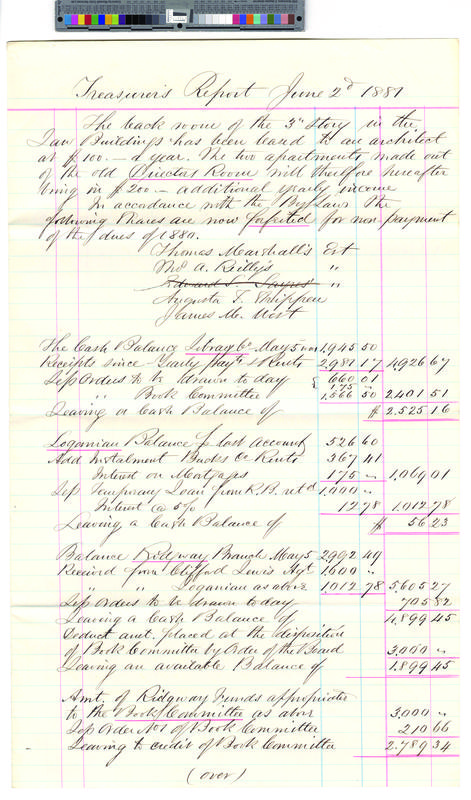 Treasurer's Report June 2d 1881
The back room of the 3rd Story in the
Law Buildings has been leased to an architect
at $100.— a year. The two apartments made out
of the old Directors Room will therefore hereafter
bring in $200.— additional yearly income
In accordance with the By Laws the
following shares are now forfeited for non payment
of the dues of 1880.
Thomas Marshall's Est
Thos A. Reilly's "
Edward S. Sayres' "
Augusta T. Shippen
James M. West
The Cash Balance Library Co May 5 was 1,945 50
Receipts since Yearly Payts & Rents 2,981 17 4,926 67
Less Orders to be drawn to day 660 01
1.75
" " Book Committee 1,566 50 2,401 51
Leaving a Cash Balance of $ 2,525 16
Loganian Balance p last Account 526 60
Add Instalment Rents 367 41
Interest on Mortgages 175 " 1,069 01
Less Temporary Loan from R.B. retd 1,000 "
Interest @ 5% 12 78 1,012 78
Leaving a Cash Balance of $ 56 23
Balance Ridgway Branch May 5 2,992 49
Received from Clifford Lewis Agt 1600 "
" " Loganian as above 1,012 78 5,605 27
Less Orders to be drawn to day 705 82
Leaving a Cash Balance of 4,899 45
Deduct amt. placed at the disposition
of Book Committee by Order of the Board 3,000 "
Leaving an available Balance of 1,899 45
Amt. of Ridgway Funds appropriated
to the Book Committee as above 3,000 "
Less Order No 1 of Book Committee 210 66
Leaving to credit of Book Committee 2,789 34
(over)